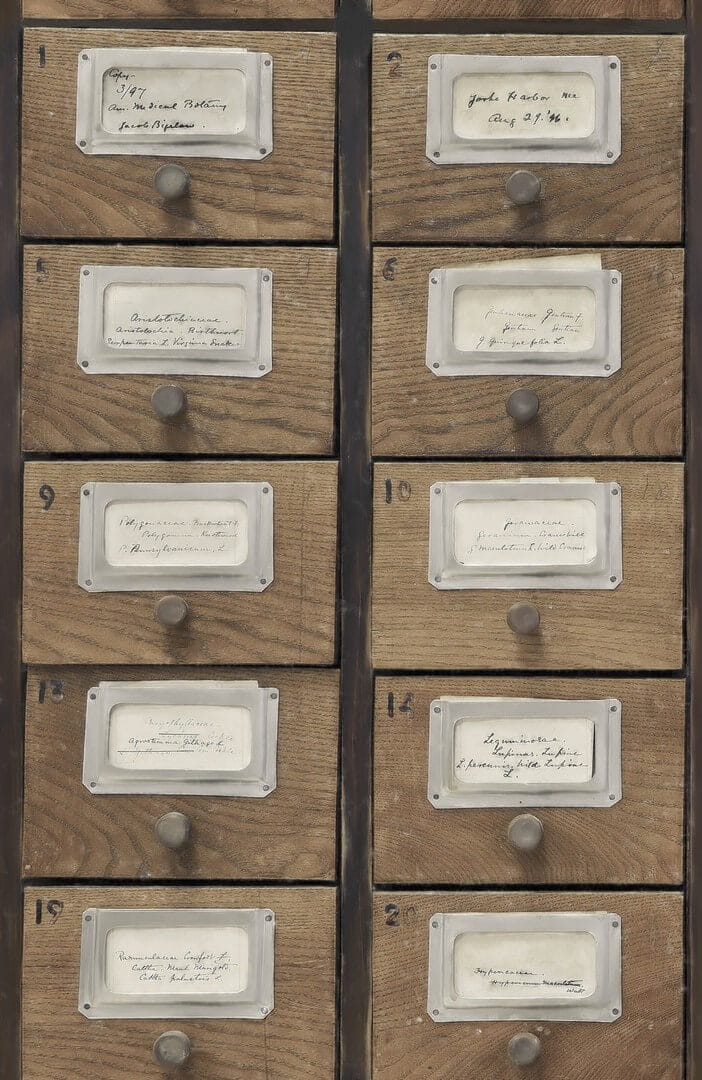 1
Copy-
3/97
Am. Medical Botany
Jacob Bigelow.
2
York Harbor Me
Aug 29. '96.
5
Aristolochiaceae.
Aristolochia. Birthwort
Serpentaria L. Virginia Snake
6
Gentian
J. Quinque folia L.
9
Polygonaceae. Buckwheat f.
Polygonum. Knotweed
P. Pennsylvanicum, L
10
Geranium. Cranesbill
G. Maculatum L. Wild Cranes
13
Agrostemma Githago L
14
Leguminosae.
Lupinus. Lupine
L. perennis, Wild Lupine
L.
19
Ranunculaceae Crowfoot f.
Caltha. Marsh Marigold
Caltha palustris L
20
Hypericaceae.
Hypericum maculatum
Walt